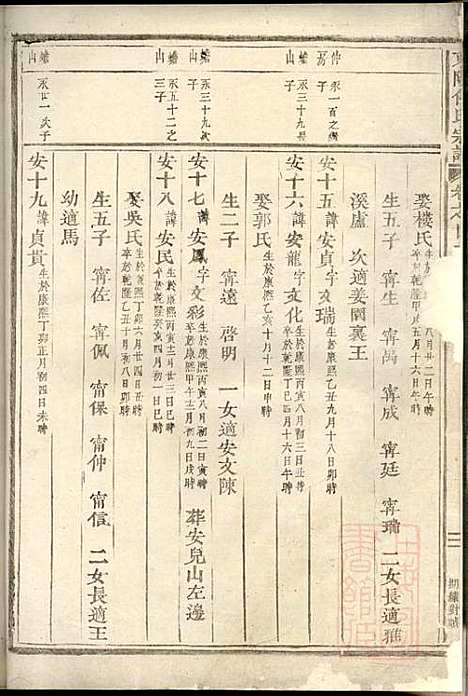 東陽何氏宗譜
娶樓氏 八月廿二日午時 五月十六日午時
生五子 甯生 甯禹 甯成 甯廷 甯瑞 二女長適雅
溪盧 次適姜閣裏王
仲房 永一百之
安十五諱安貞字文瑞 生於康熙乙丑九月十八日卯時
娶郭氏 生於康熙乙亥十月十二日申時
蟾山 永三十九長子
安十六諱安龍字文化 生於康熙丙寅八月初三日丑時 卒於乾隆丁巳四月十六日午時
生二子 甯遠 啓明 一女適安文陳
蟾山 永三十九次子
安十七諱安鳳字文彩 生於康熙丙寅八月初二日寅時 卒於康熙甲午十二月初九日戌時 葬安兒山左邊
蟾山 永五十二之三子
安十八諱安民 生於康熙丙寅十二月廿三日巳時 卒於乾隆癸亥四月初一日巳時
娶吳氏 生於康熙丁卯六月廿四日丑時 卒於乾隆乙丑十月初七日卯時
生五子 甯佐 甯佩 甯保 甯仲 甯信 二女長適王
幼適馬
蟾山 永廿一次子
安十九諱貞貴 生於康熙丁卯正月初四日未時